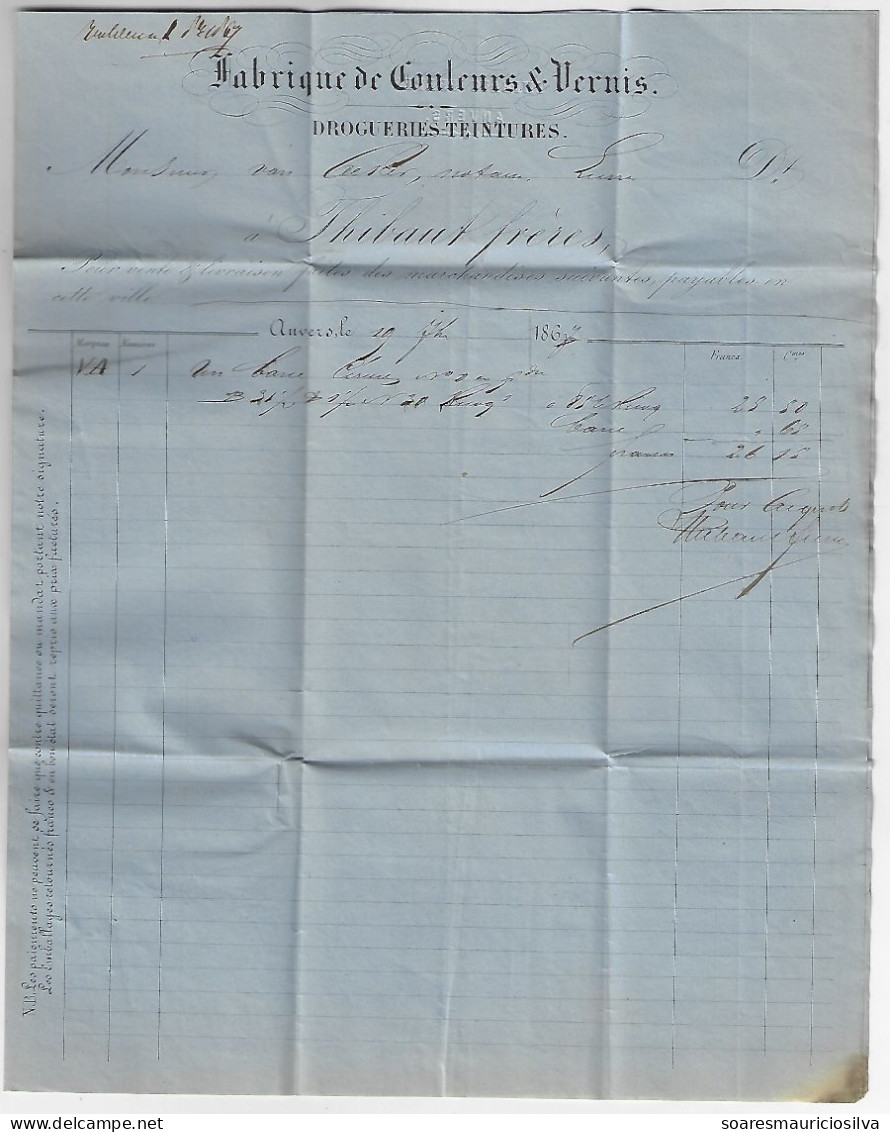 8bre 1867
Fabrique de Couleurs & Vernis.
DROGUERIES-TEINTURES.
Monsieur van notaire, Lierre Dt
à Thibaut frères,
Pour vente & livraison faites des marchandises suivantes, payables en
cette ville
Anvers, le 19 1867
Marques Numéros Francs Cmes
VA 1 un baril
N 30 à 85 23 50
baril " 65
francs 26 15
Pour acquit
Thibaut frères
N.B. Les paiements ne peuvent se faire que contre quittance ou mandat portant notre signature.
Les Emballages retournés franco & en bon état seront repris aux prix facturés.
soaresmauriciosilva